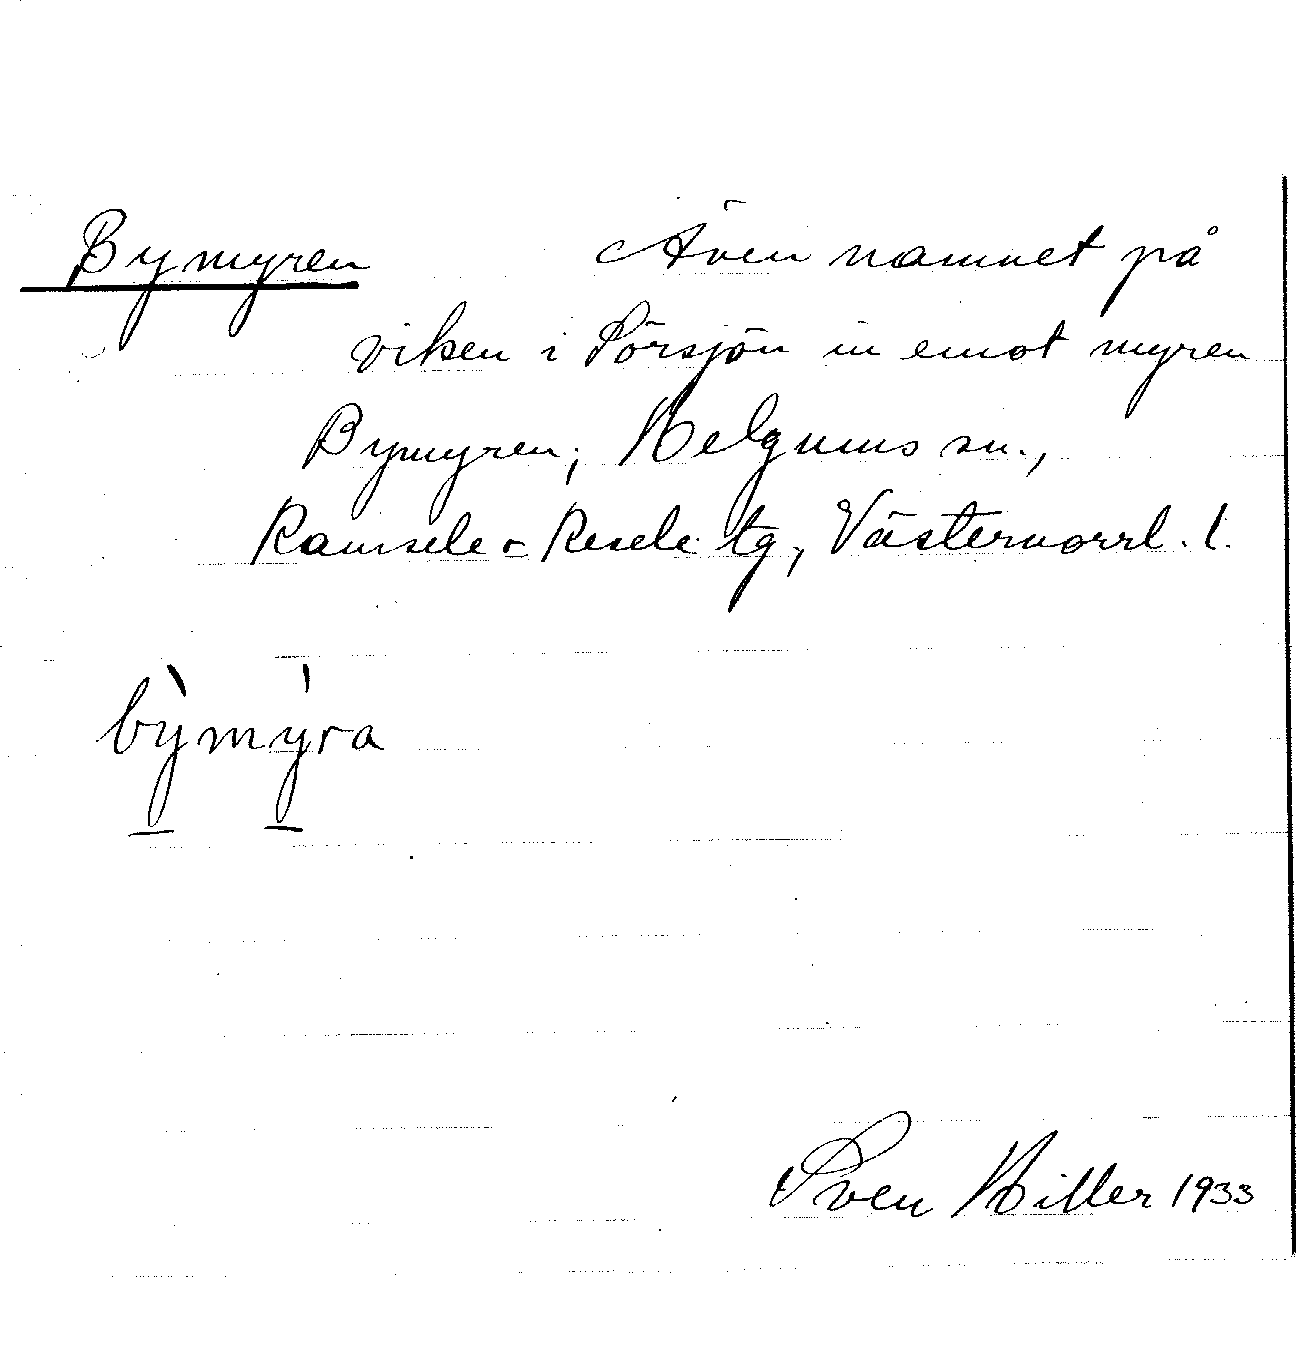 Bymyren Även namnet på
viken i Sörsjön in emot myren
Bymyren, Helgums sn.,
Ramsele o Resele tg, Västernorrl. l.
bỳmýra
Sven Hiller 1933